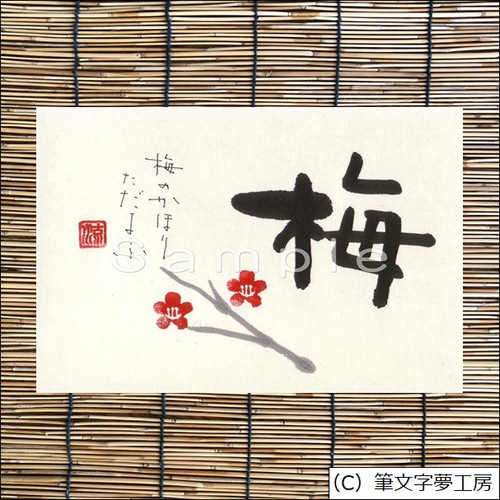 梅
梅のかほり
ただよふ
Sample
(C) 筆文字夢工房